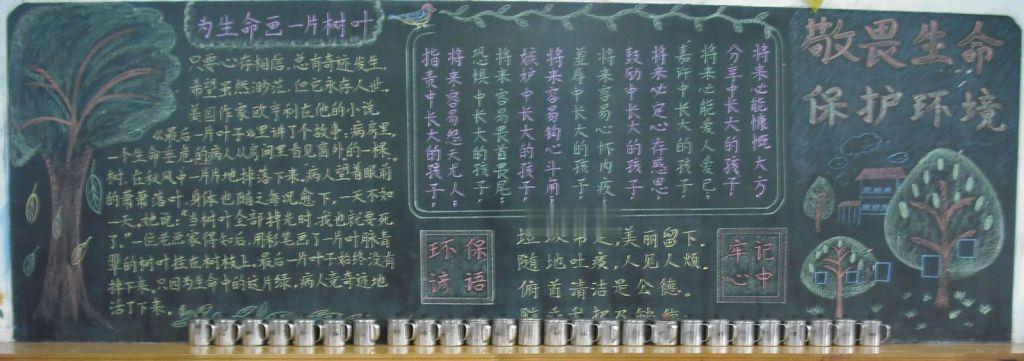 为生命画一片树叶
只要心存相信，总有奇迹发生，
希望虽然渺茫，但它永存人世。
美国作家欧亨利在他的小说
《最后一片叶子》里讲了个故事：病房里，
一个生命垂危的病人从房间里看见窗外的一棵
树，在秋风中一片片地掉落下来。病人望着眼前
的萧萧落叶，身体也随之每况愈下，一天不如
一天。她说："当树叶全部掉光时，我也就要死
了。"一位老画家得知后，用彩笔画了一片叶脉青
翠的树叶挂在树枝上。最后一片叶子始终没有
掉下来。只因为生命中的这片绿，病人竟奇迹地
活了下来。
指责中长大的孩子，
将来容易怨天尤人；
恐惧中长大的孩子，
将来容易畏首畏尾；
嫉妒中长大的孩子，
将来容易钩心斗角；
羞辱中长大的孩子，
将来容易心怀内疚；
鼓励中长大的孩子，
将来必定心存感恩；
嘉许中长大的孩子，
将来必能爱人爱己；
分享中长大的孩子，
将来必能慷慨大方。
环保
谚语
美丽留下。
随地吐痰，人见人烦。
俯首清洁是公德。
牢记
心中
敬畏生命
保护环境